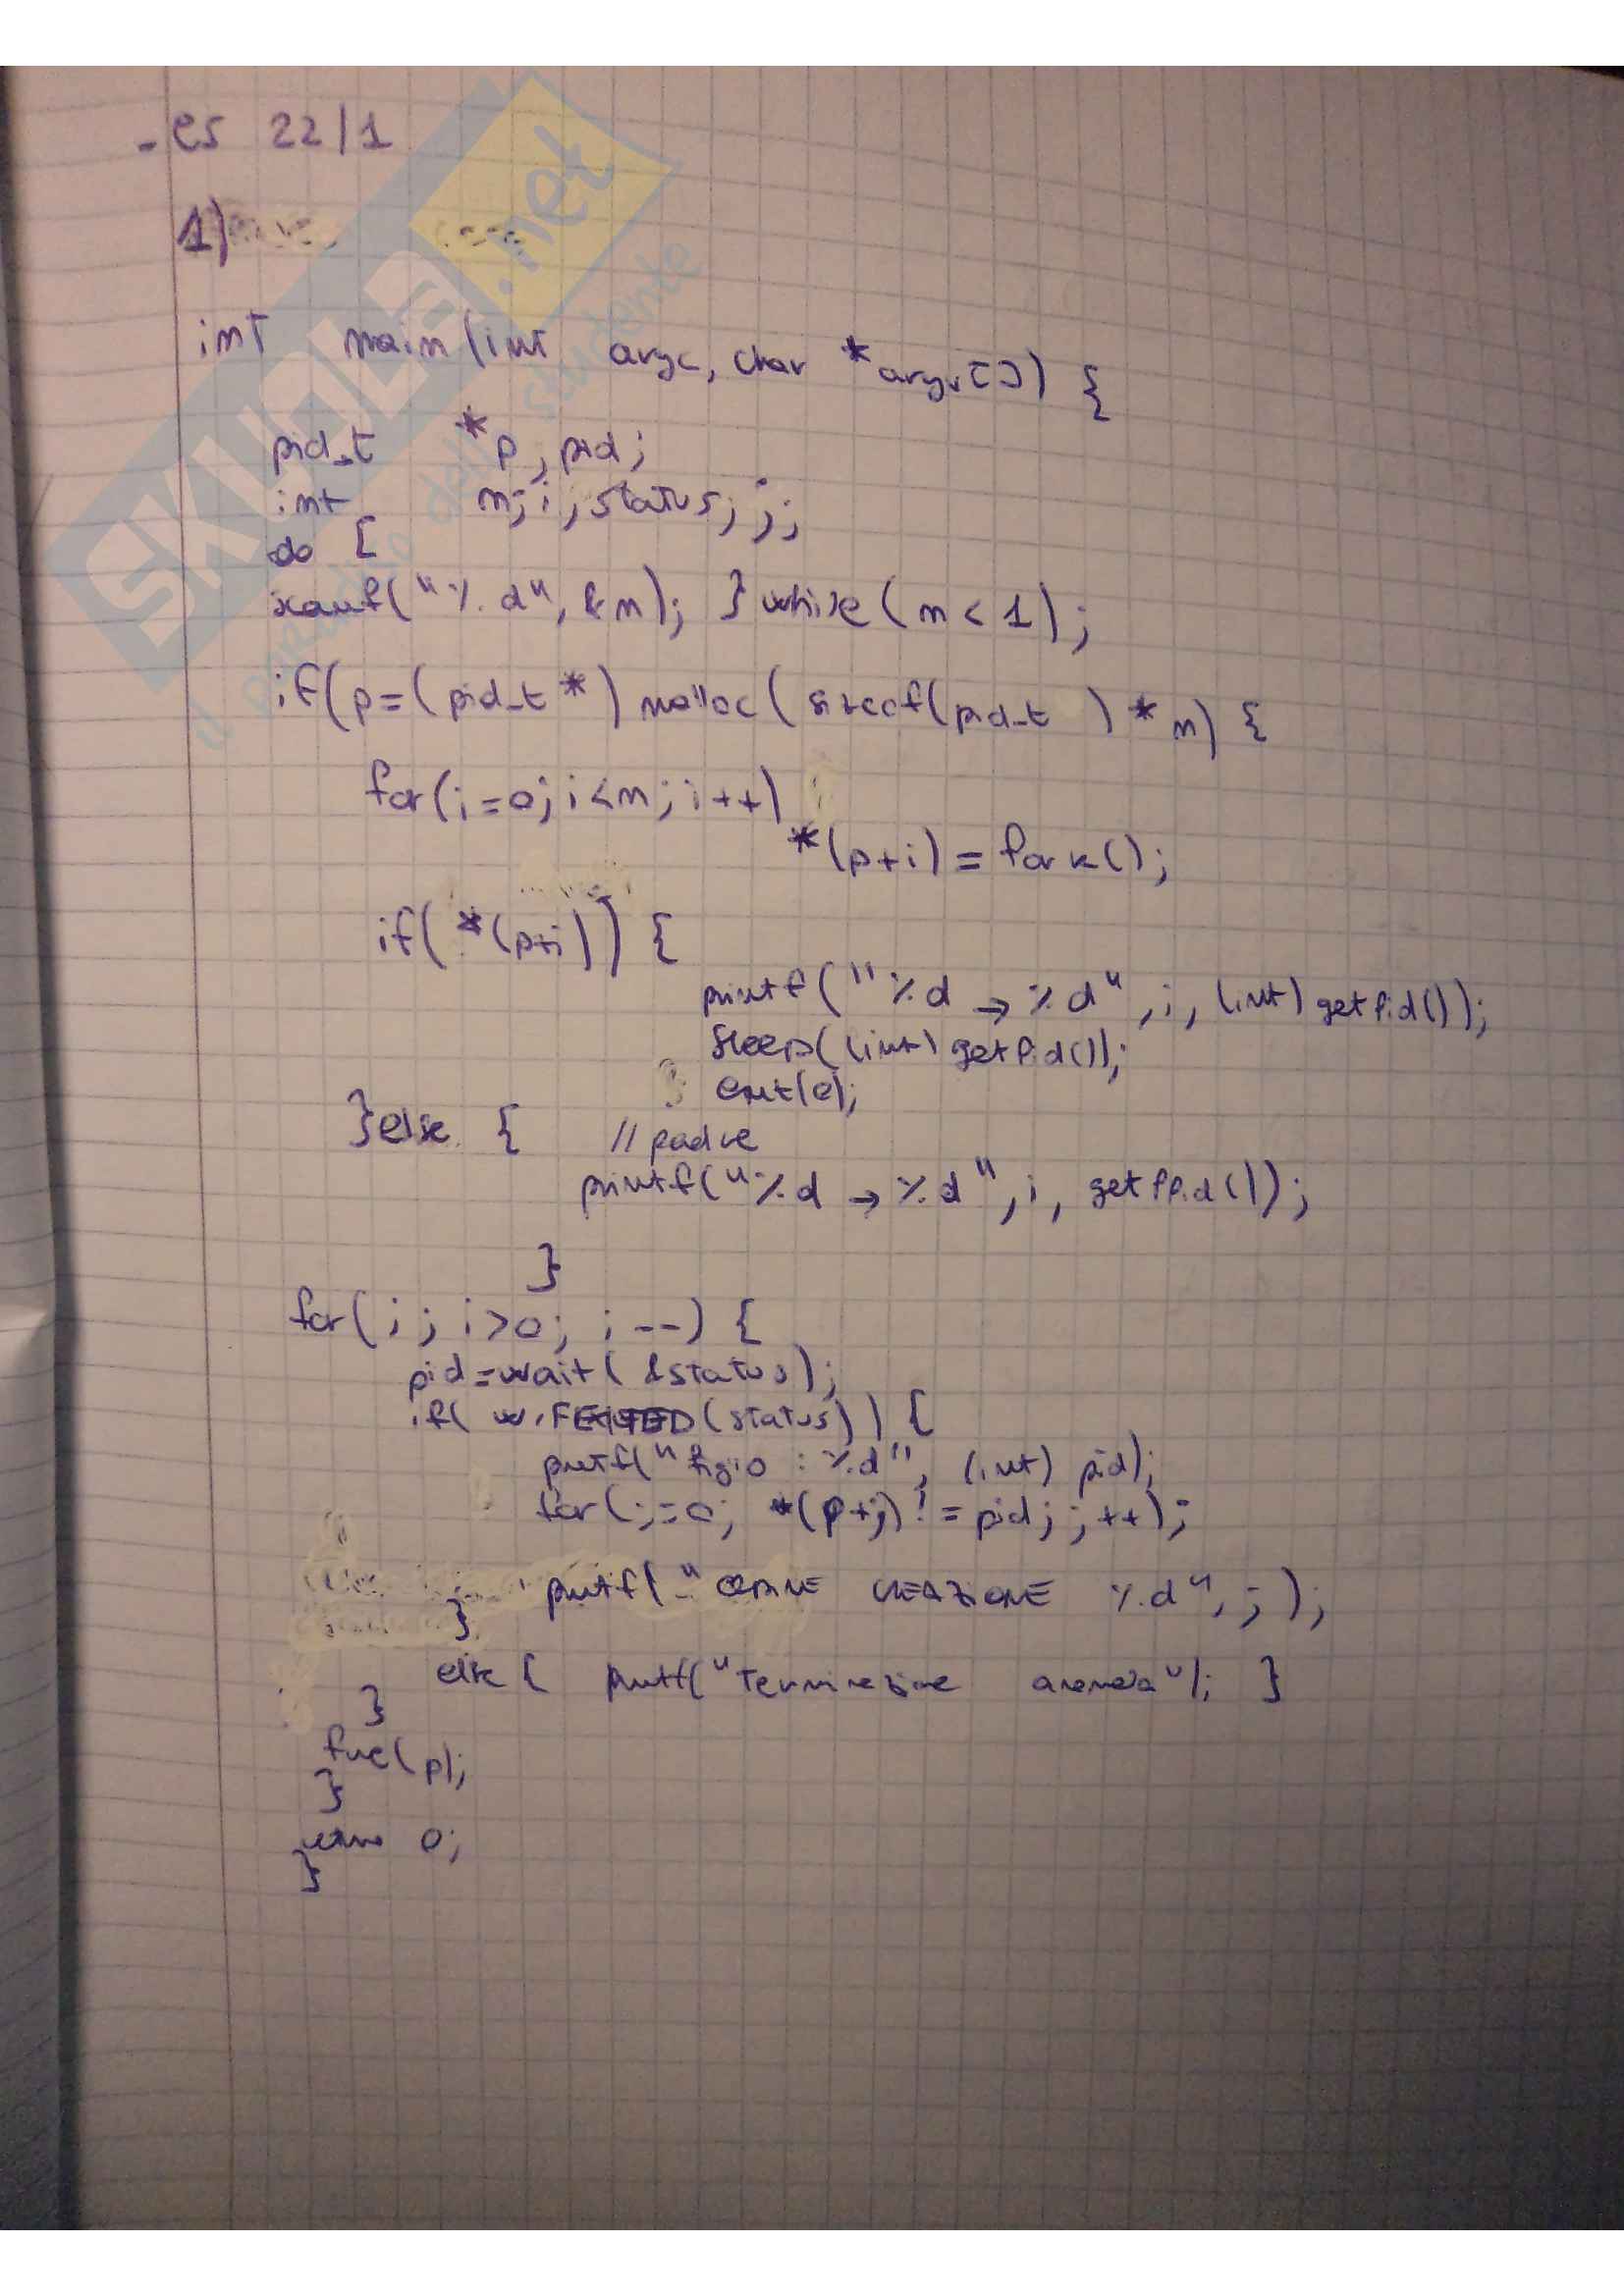 - es 22/1
1)
int main(int argc, char *argv[]) {
pid_t *p, pid;
int n, i, status, j;
do {
scanf("%d", &n); } while (n < 1);
if(p=(pid_t *) malloc(sizeof(pid_t ) * n) {
for(i=0; i<n; i++)
*(p+i) = fork();
if( *(p+i)) {
printf("%d → %d", i, (int) getpid());
sleep((int) getpid());
exit(0);
}else { // padre
printf("%d → %d", i, getppid());
}
for( ; i>0; i--) {
pid=wait( &status);
if( WIFEXITED(status)) {
printf("figlio : %d", (int) pid);
for(j=0; *(p+j) != pid; j++);
printf("ORDINE CREAZIONE %d", j);
}
else { printf("Terminazione anomala"); }
}
free(p);
}
return 0;
}
SKUOLA.net
il paradiso dello studente